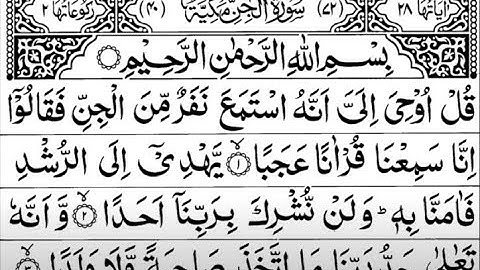 اٰيَاتُهَا ٢٨ (٧٢) سُوْرَةُ الْجِنِّ مَكِّيَّةٌ (٤٠) رُكُوْعَاتُهَا ٢
بِسْمِ اللّٰهِ الرَّحْمٰنِ الرَّحِيْمِ
قُلْ اُوْحِيَ اِلَيَّ اَنَّهُ اسْتَمَعَ نَفَرٌ مِّنَ الْجِنِّ فَقَالُوْۤا
اِنَّا سَمِعْنَا قُرْاٰنًا عَجَبًا ۙ۱ يَّهْدِيْۤ اِلَى الرُّشْدِ
فَاٰمَنَّا بِهٖ ؕ وَلَنْ نُّشْرِكَ بِرَبِّنَاۤ اَحَدًا ۙ۲ وَّاَنَّهٗ
تَعٰلٰى جَدُّ رَبِّنَا مَا اتَّخَذَ صَاحِبَةً وَّلَا وَلَدًا ۙ۳